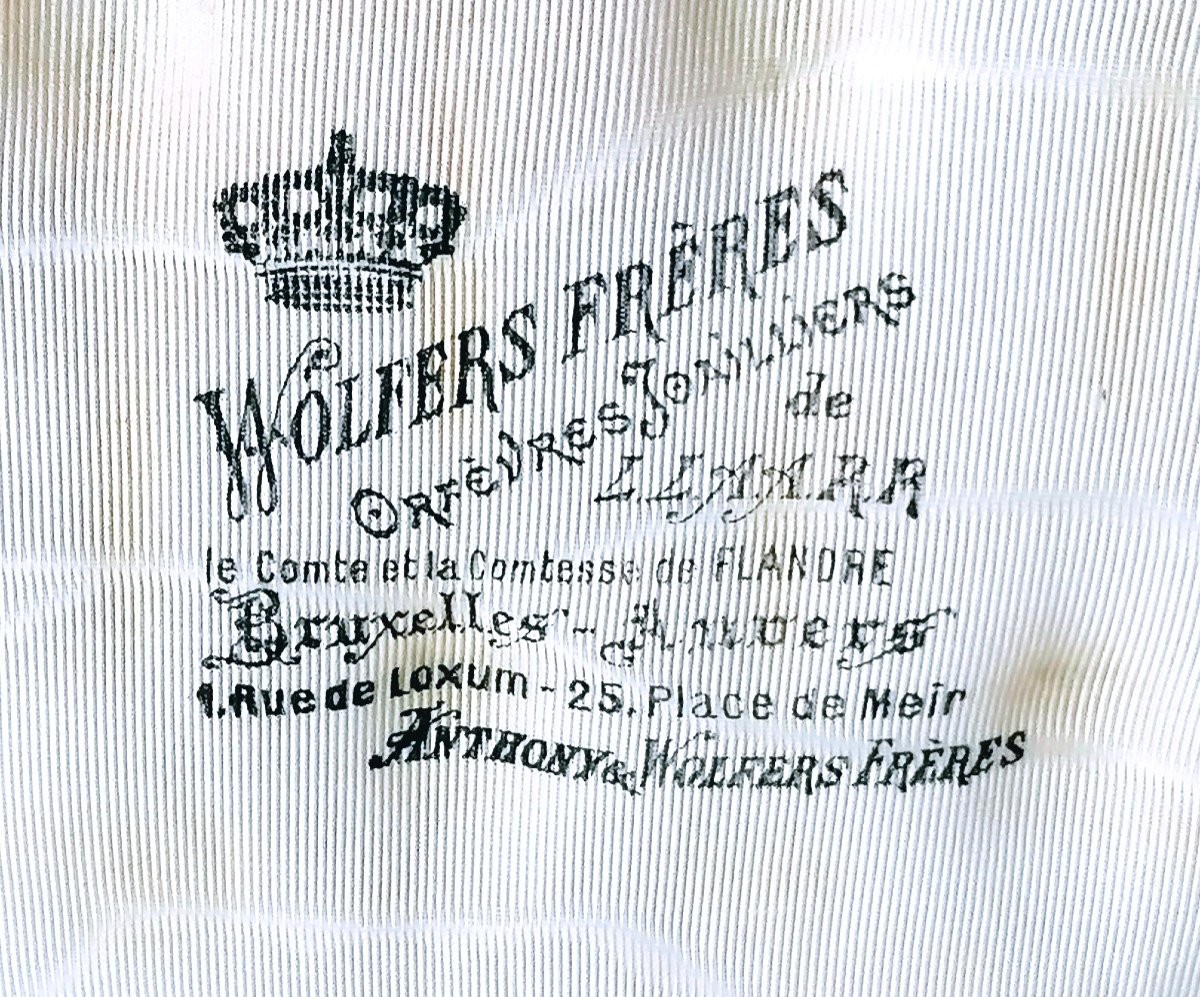 WOLFERS FRÈRES
ORFÈVRES JOAILLIERS
de
LL.AA.RR
le Comte et la Comtesse de FLANDRE
Bruxelles - Anvers
1. Rue de Loxum - 25, Place de Meir
ANTHONY & WOLFERS FRÈRES